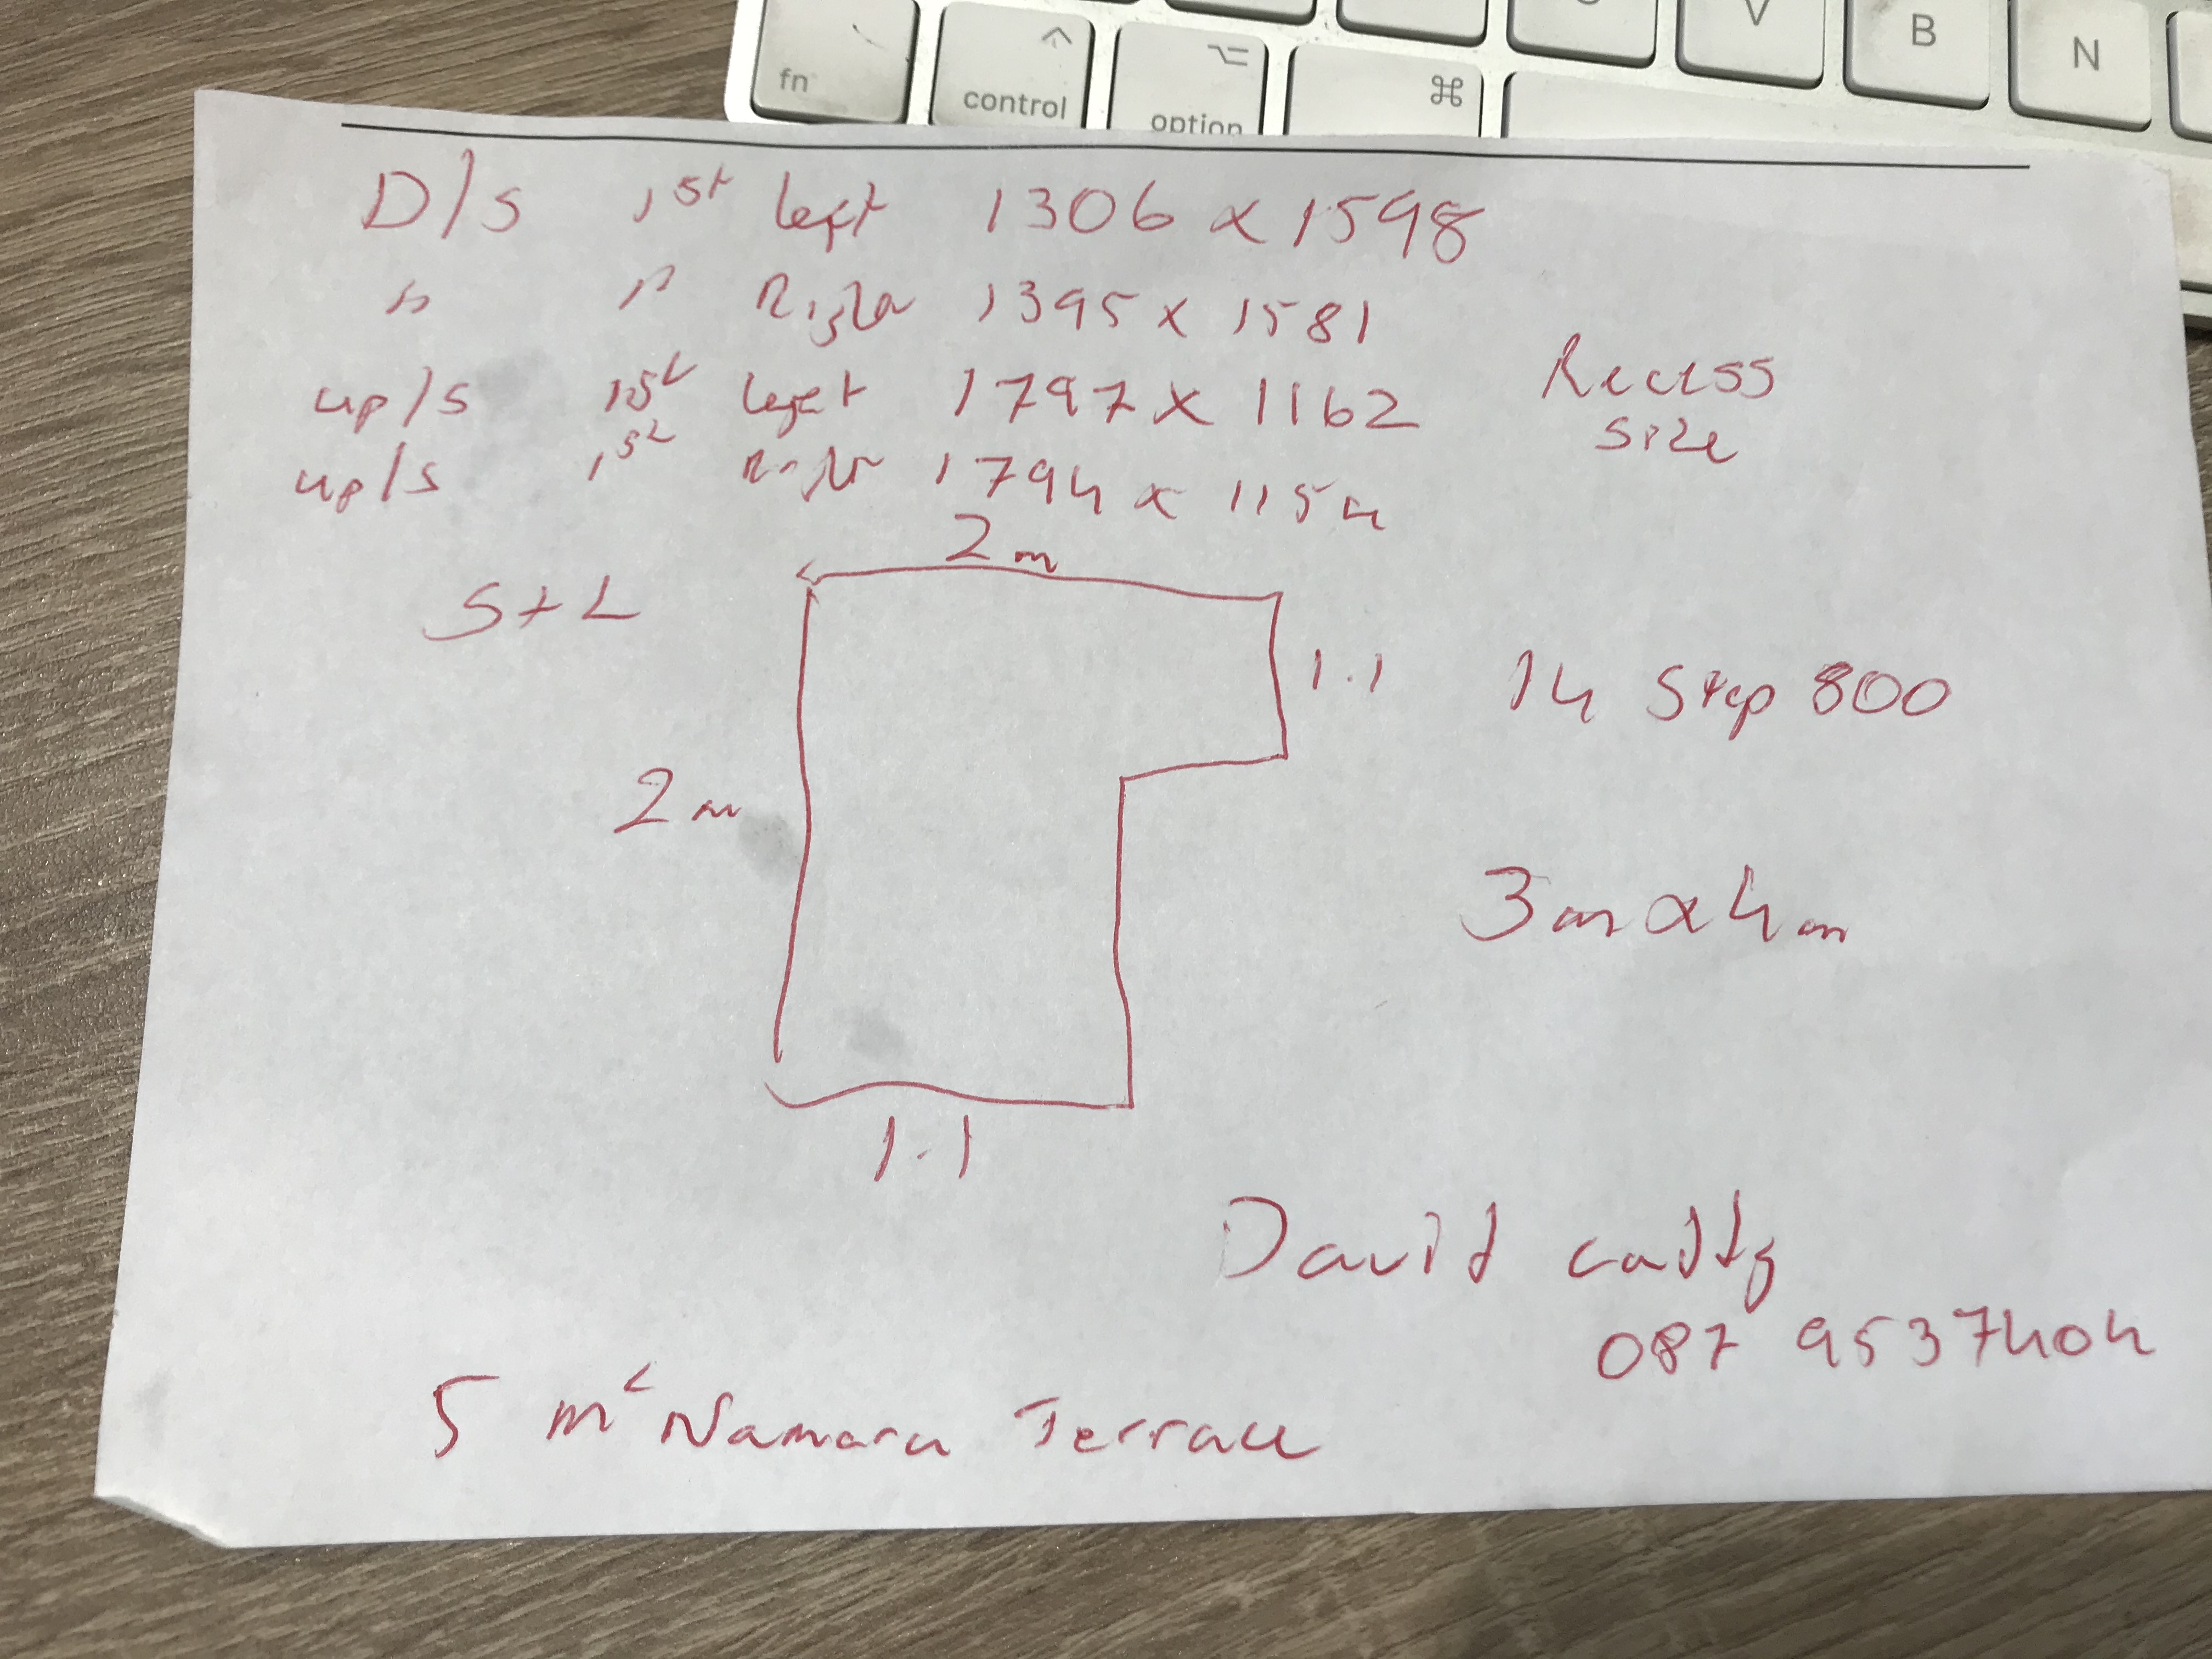 fn control option ⌘ V B N
D/S 1st left 1306 x 1598
" " Right 1395 x 1581
up/s 1st left 1797 x 1162
up/s 1st Right 1794 x 1154
Recess
size
2m
S+L
1.1
14 Step 800
2m
3m x 4m
1.1
David caddy
087 9537404
5 Mc Namara Terrace